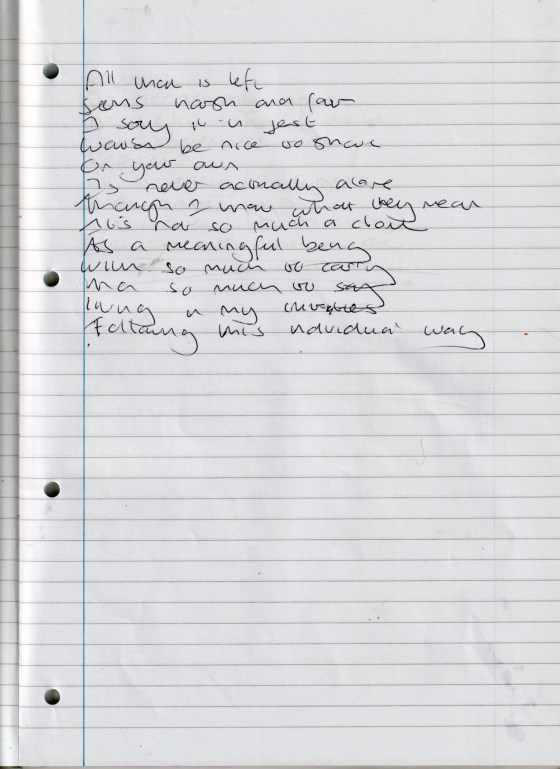 All that is left
Seems harsh and fair
I say it in jest
Would be nice to share
On your own
Is never actually alone
Though I know what they mean
It's not so much a
As a meaningful being
With so much to carry
Not so much to say
Living in my
Following this individual way